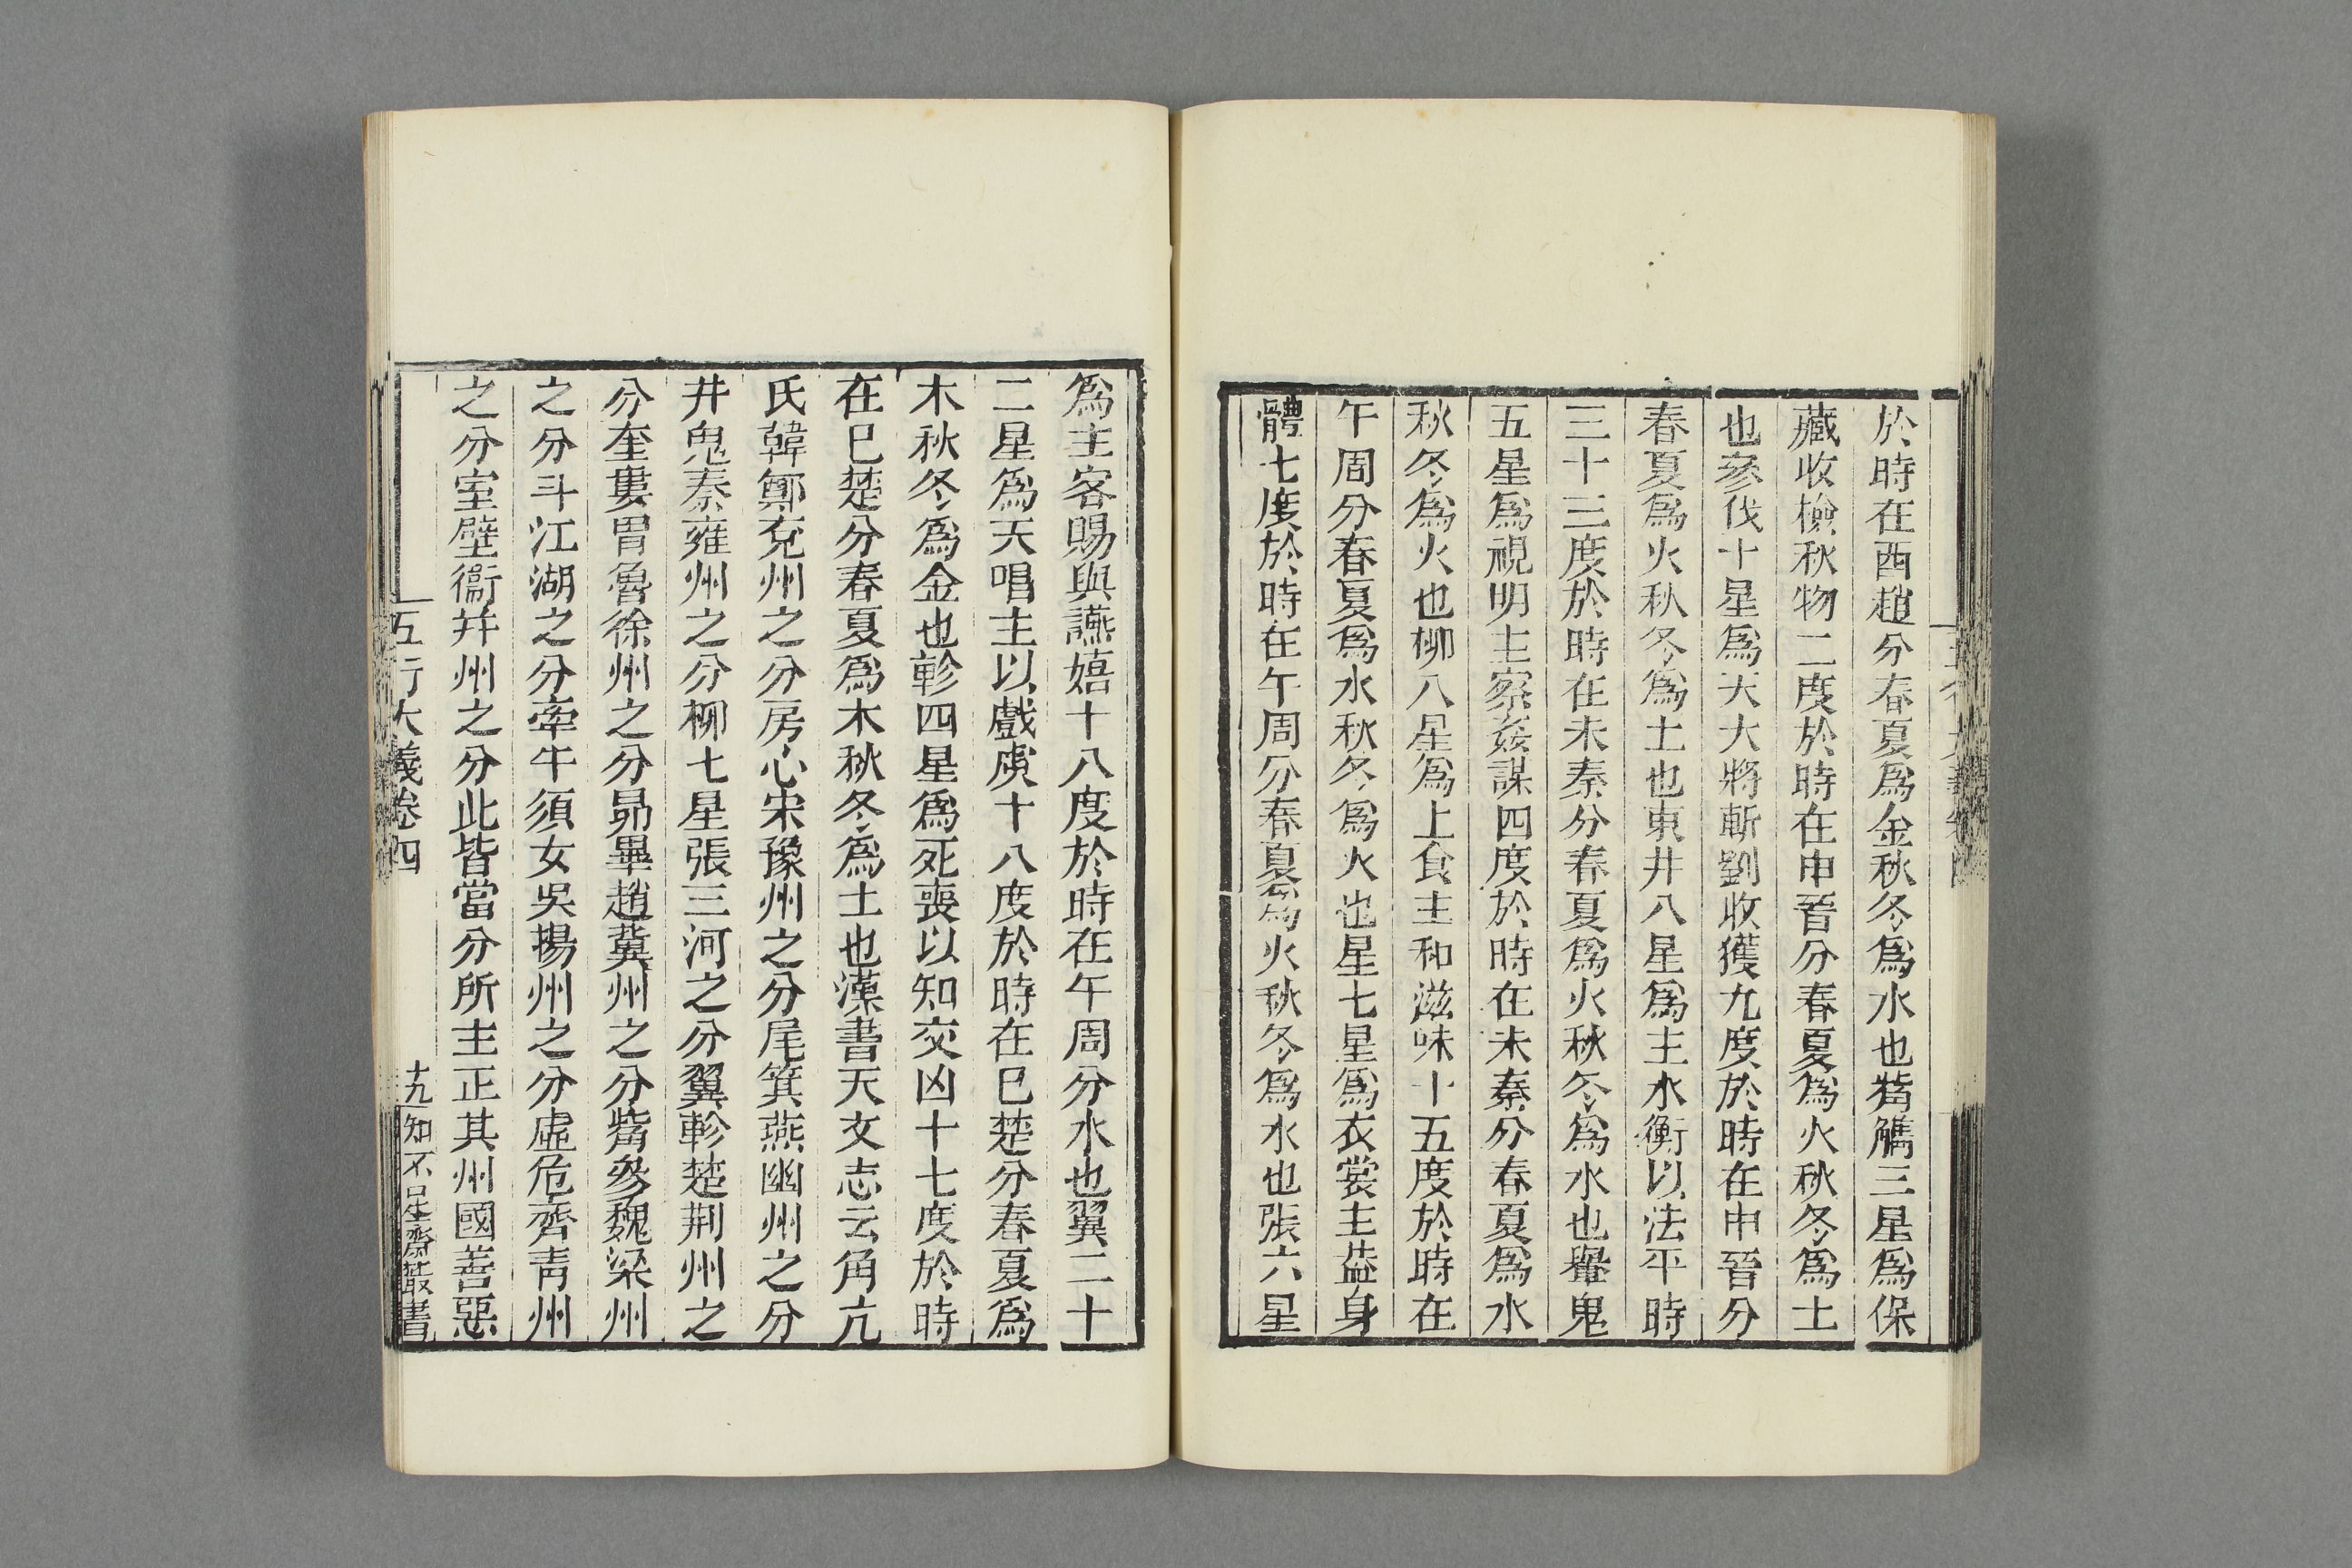 於時在酉趙分春夏爲金秋冬爲水也觜觿三星爲保
藏收檢秋物二度於時在申晉分春夏爲火秋冬爲土
也參伐十星爲天大將斬劉收獲九度於時在申晉分
春夏爲火秋冬爲土也東井八星爲主水衡以法平時
三十三度於時在未秦分春夏爲火秋冬爲水也轝鬼
五星爲視明主察姦謀四度於時在未秦分春夏爲水
秋冬爲火也柳八星爲上食主和滋味十五度於時在
午周分春夏爲水秋冬爲火也星七星爲衣裳主葢身
體七度於時在午周分春夏爲火秋冬爲水也張六星
爲主客賜與讌嬉十八度於時在午周分水也翼二十
二星爲天唱主以戲虞十八度於時在巳楚分春夏爲
木秋冬爲金也軫四星爲死喪以知交凶十七度於時
在巳楚分春夏爲木秋冬爲土也漢書天文志云角亢
氐韓鄭兗州之分房心宋豫州之分尾箕燕幽州之分
井鬼秦雍州之分柳七星張三河之分翼軫楚荆州之
分奎婁胃魯徐州之分昴畢趙冀州之分觜參魏梁州
之分斗江湖之分牽牛須女吳揚州之分虛危齊青州
之分室壁衞幷州之分此皆當分所主正其州國善惡
五行大義卷四
十九
知不足齋叢書